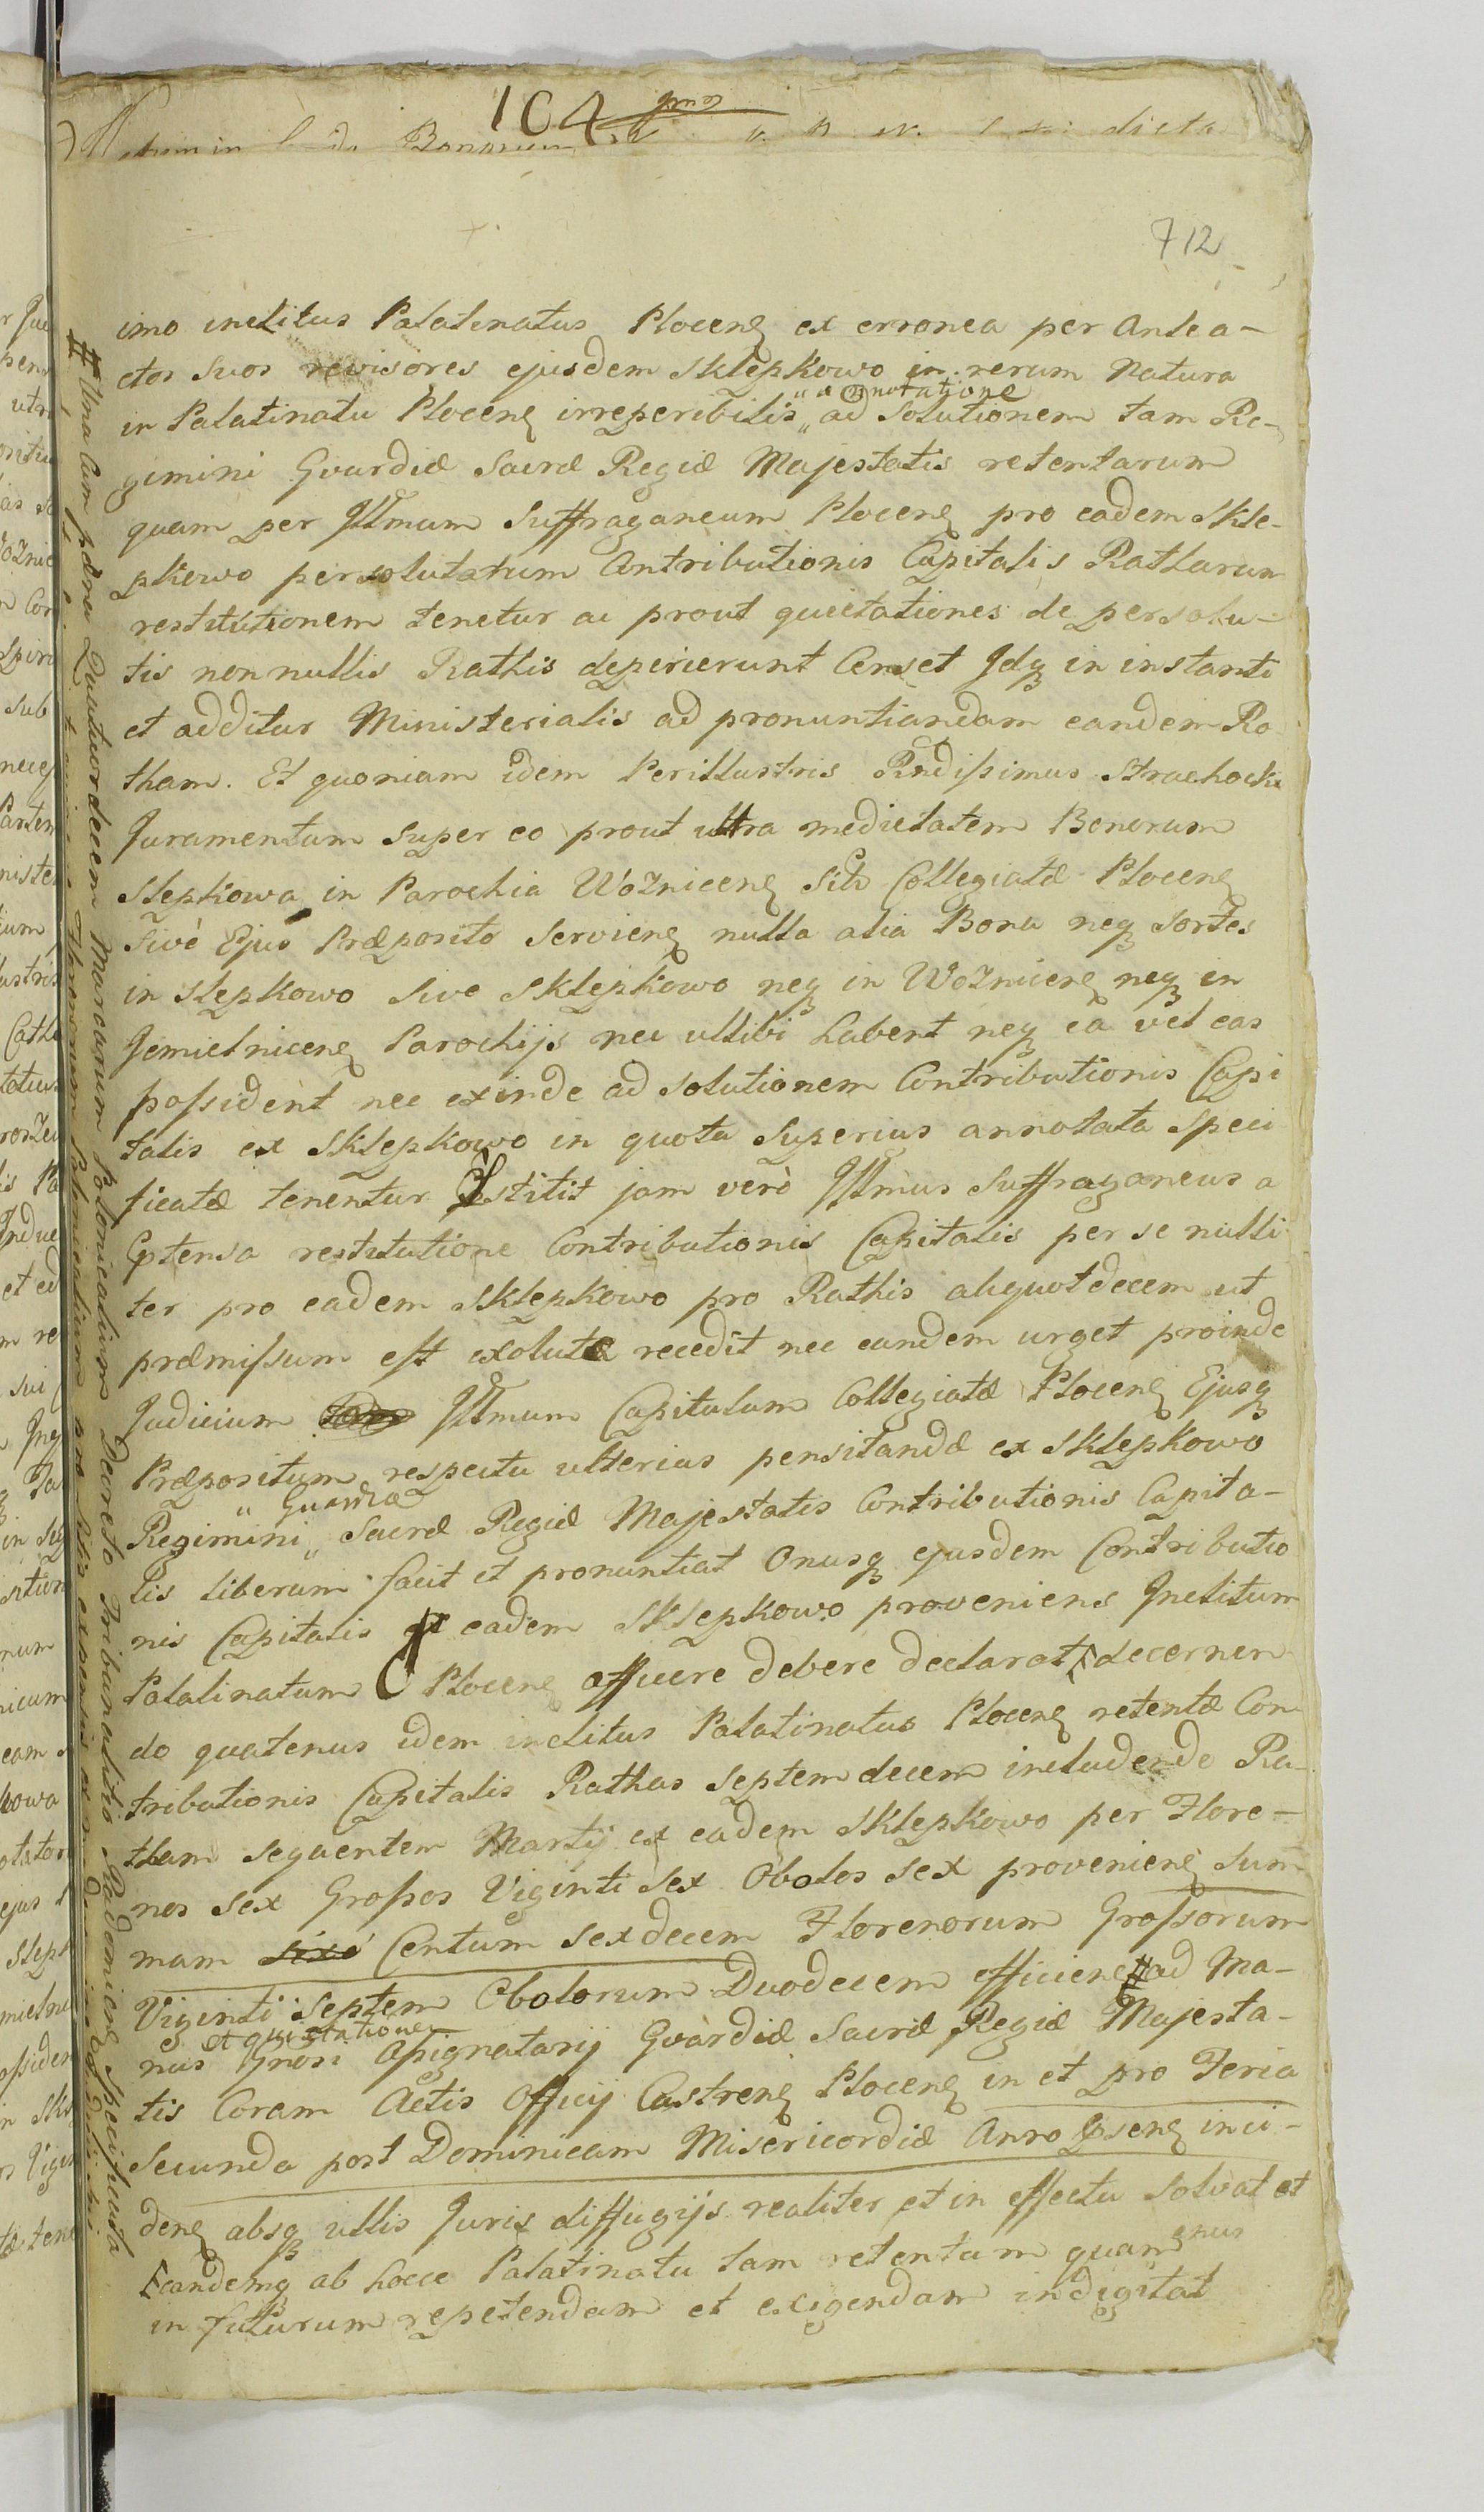 104
712
imo inclitus Palatinatus Plocen ex erronea per Antea-
ctos suos revisores ejusdem Sklepkowo in rerum Natura
annotatione
in Palatinatu Plocen irreperibilis ad Solutionem tam Re-
gimini Gvardiæ Sacræ Regiæ Majestatis retentarum
quam per Illmum Suffraganeum Plocen pro eadem Skle-
pkowo persolutarum Contributionis Capitalis Ratharum
restitutionem tenetur ac prout quietationes de persolu-
tis nonnullis Rathis deperierunt Censet Idq in instanti
et additur Ministerialis ad pronuntiandam eandem Ro
tham. Et quoniam idem Perillustris Rndissimus Strachocki
Juramentum super eo prout ultra medietatem Bonorum
Slepkowa in Parochia Woznicen Sito Collegiatæ Plocen
sivè Ejus Præposito Servien nulla alia Bona neq Sortes
in Slepkowo sive Sklepkowo neq in Woznicen neq in
Jemielnicen Parochijs nec ullibi habent neq ea vel eas
possident nec exinde ad solutionem Contributionis Capi
talis ex Sklepkowo in quota superius annotata speci
ficatæ tenentur Pstitit jam verò Illmus Suffraganeus a
Ptensa restitutione Contributionis Capitalis per se nulli
ter pro eadem Sklepkowo pro Rathis aliquotdecem ut
præmissum est exolutæ recedit nec eandem urget proinde
Judicium Illmum Capitulum Collegiatæ Plocen Ejusq
Præpositum respectu ulterius pensitandæ ex Sklepkowo
Guardiæ
Regimini Sacræ Regiæ Majestatis Contributionis Capita-
lis liberum facit et pronuntiat Onusq ejusdem Contributio
nis Capitalis ex eadem Sklepkowo proveniens Inclitum
Palatinatum Plocen afficere debere declarat decernen
do quatenus idem inclitus Palatinatus Plocen retentæ Con
tributionis Capitalis Rathas septemdecem includendo Ra-
tham sequentem Martij ex eadem Sklepkowo per Flore-
nos sex Grossos Viginti sex Obolos sex provenien sum-
mam Centum sexdecem Florenorum Grossorum
Viginti septem Obolorum Duodecem efficien # ad Ma-
et quietationem
nus Gnosi Assignatarij Gvardiæ Sacræ Regiæ Majesta-
tis Coram Actis Officij Castren Plocen in et pro Feria
Secunda post Dominicam Misericordiæ Anno Psen inci-
den absq ullis Juris diffugijs realiter et in effectu solvat et
eandemq ab hocce Palatinatu tam retentam quam
in futurum repetendam et exigendam indigitat
# Una Cum pæna Quatuordecem Marcarum Polonicalium Decreto Tribunalitio Radomien specificata